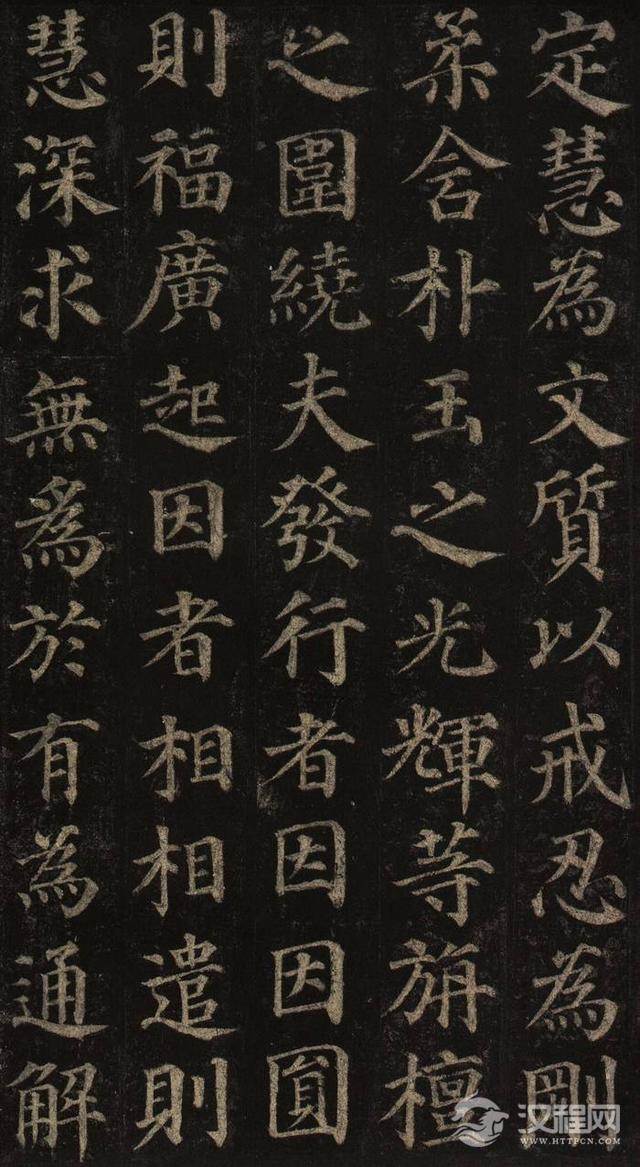 定慧為文質以戒忍為剛
柔含朴玉之光輝等旃檀
之圍繞夫發行者因因圎
則福廣起因者相相遣則
慧深求無為於有為通解
汉程网
WWW.HTTPCN.COM